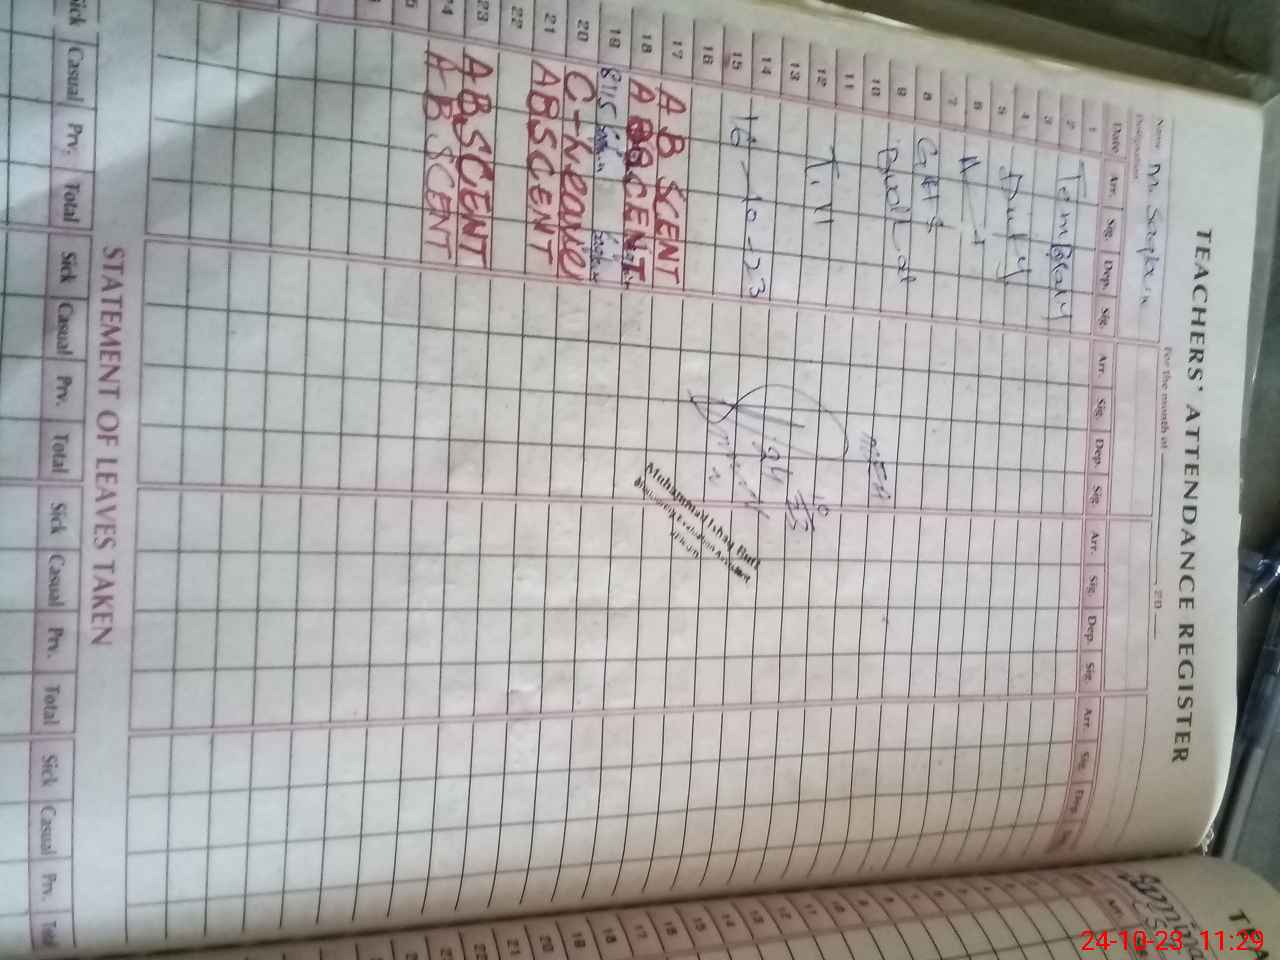 TEACHERS' ATTENDANCE REGISTER
For the month of 20
Name
Designation
Date Arr. Sig. Dep. Sig. Arr. Sig. Dep. Sig. Arr. Sig. Dep. Sig. Arr. Sig. Dep.
1
2 Temprary
3
4
5 Duty
6 At
7
8 GHS
9
10
11
12 Till
13
14
15 16-10-23
16
17 ABSCENT
18 ABSCENT
19 8:15
20 C-Leave
21 ABSCENT
22
23 ABSCENT
24 ABSCENT
MEA
Muhammad Ishaq Butt
STATEMENT OF LEAVES TAKEN
Sick Casual Prv. Total Sick Casual Prv. Total Sick Casual Prv. Total Sick Casual Prv. Total
24-10-23 11:29